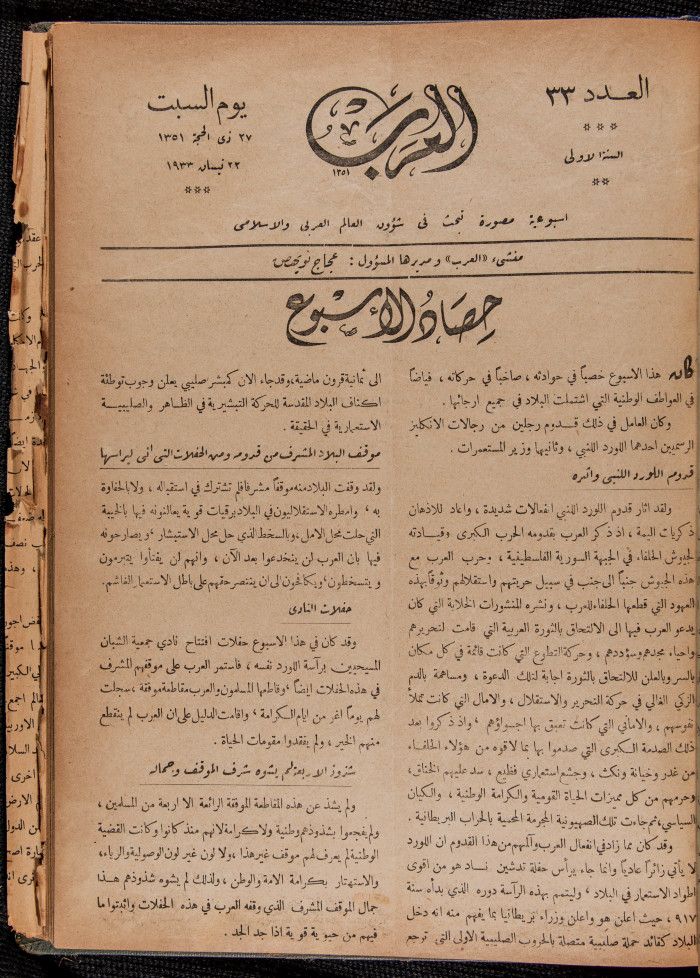 العدد ٣٣
السنة الاولى
العرب
١٣٥١
يوم السبت
٢٧ ذى الحجة ١٣٥١
٢٢ نيسان ١٩٣٣
اسبوعية مصورة تبحث فى شؤون العالم العربى والاسلامى
منشىء «العرب» ومديرها المسؤول : عجاج نويهض
حصاد الأسبوع
كان هذا الاسبوع خصباً في حوادثه ، صاخباً في حركاته ، فياضاً
في العواطف الوطنية التي اشتملت البلاد في جميع ارجائها .
وكان العامل في ذلك قدوم رجلين من رجالات الانكليز
الرسميين احدهما اللورد اللنبي ، وثانيها وزير المستعمرات .
قدوم اللورد اللنبى واثره
ولقد اثار قدوم اللورد اللنبي انفعالات شديدة ، واعاد للاذهان
ذكريات اليمة ، اذ ذكر العرب بقدومه الحرب الكبرى وقيادته
لجيوش الحلفاء في الجبهة السورية الفلسطينية ، وحرب العرب مع
هذه الجيوش جنباً الى جنب في سبيل حريتهم واستقلالهم وثوقاً بهذه
العهود التي قطعها الحلفاء للعرب ، ونشره المنشورات الخلابة التي كان
يدعو العرب فيها الى الالتحاق بالثورة العربية التي قامت لتحريرهم
واحياء مجدهم وسؤددهم ، وحركة التطوع التي كانت قائمة في كل مكان
بالسر وبالعلن للالتحاق بالثورة اجابة لتلك الدعوة ، ومساهمة بالدم
الزكي الغالي في حركة التحرير والاستقلال ، والامال التي كانت تملأ
نفوسهم ، والاماني التي كانت تعبق بها اجواؤهم ‘ واذ ذكروا بعد
ذلك الصدمة الكبرى التي صدموا بها بما لاقوه من هؤلاء الحلفاء
من غدر وخيانة ونكث ، وجشع استعماري فظيع ، سد عليهم الخناق ،
وحرمهم من كل مميزات الحياة القومية والكرامة الوطنية ، والكيان
السياسي ، ثم جاءت تلك الصهيونية المجرمة المحمية بالحراب البريطانية .
وقد كان مما زاد في انفعال العرب وآلمهم من هذا القدوم ان اللورد
لا يأتي زائراً عادياً وانما جاء يرأس حفلة تدشين نــاد هو من اقوى
اطواد الاستعمار في البلاد ‘ وليتمم بهذه الرآسة دوره الذي بدأه سنة
٩١٧ ، حيث اعلن هو واعلن وزراء بريطانيا بما يفهم منه انه دخل
البلاد كقائد حملة صليبية متصلة بالحروب الصليبية الاولى التي ترجع
الى ثمانية قرون ماضية ، وقد جاء الان كمبشر صليبي يعلن وجوب توطئة
اكناف البلاد المقدسة للحركة التبشيرية في الظاهر والصليبيــة
الاستعمارية في الحقيقة .
موقف البلاد المشرف من قدومه ومن الحفلات التى أتى ليرأسها
ولقد وقفت البلاد منه موقفاً مشرفاً فلم تشترك في استقباله ، ولا بالحفاوة
به ‘ وامطره الاستقلاليون في البلاد برقيات قوية يعالنونه فيها بالخيبة
التي حلت محل الامل ، وبالسخط الذي حل محل الاستبشار ‘ ويصارحونه
فيها بان العرب لن ينخدعوا بعد الآن ، وانهم لن يفتأوا يتبرمون
ويتسخطون ‘ ويكافحون الى ان ينتصر حقهم على باطل الاستعمار الغاشم .
حفلات النادى
وقد كان في هذا الاسبوع حفلات افتتاح نادي جمعية الشبان
المسيحيين برآسة اللورد نفسه ، فاستمر العرب على موقفهم المشرف
في هذه الحفلات ايضاً ‘ وقاطعها المسلمون والعرب مقاطعة موفقة ، سجلت
لهم يوماً اغر من ايام الكرامة ‘ واقامت الدليل على ان العرب لم ينقطع
منهم الخير ، ولم يفقدوا مقومات الحياة .
شذوذ الاربعة لم يشوه شرف الموقف وجماله
ولم يشذ عن هذه المقاطعة الموفقة الرائعة الا اربعة من المسلمين ،
ولم يفجعوا بشذوذهم وطنية ولا كرامة لانهم منذ كانوا وكانت القضية
الوطنية لم يعرف لهم موقف غير هذا ، ولا لون غير لون الوصولية والرياء ،
والاستهتار بكرامة الامة والوطن ، ولذلك لم يشوه شذوذهم هذا
جمال الموقف المشرف الذي وقفه العرب في هذه الحفلات واثبتوا ما
فيهم من حيوية قوية اذا جد الجد .